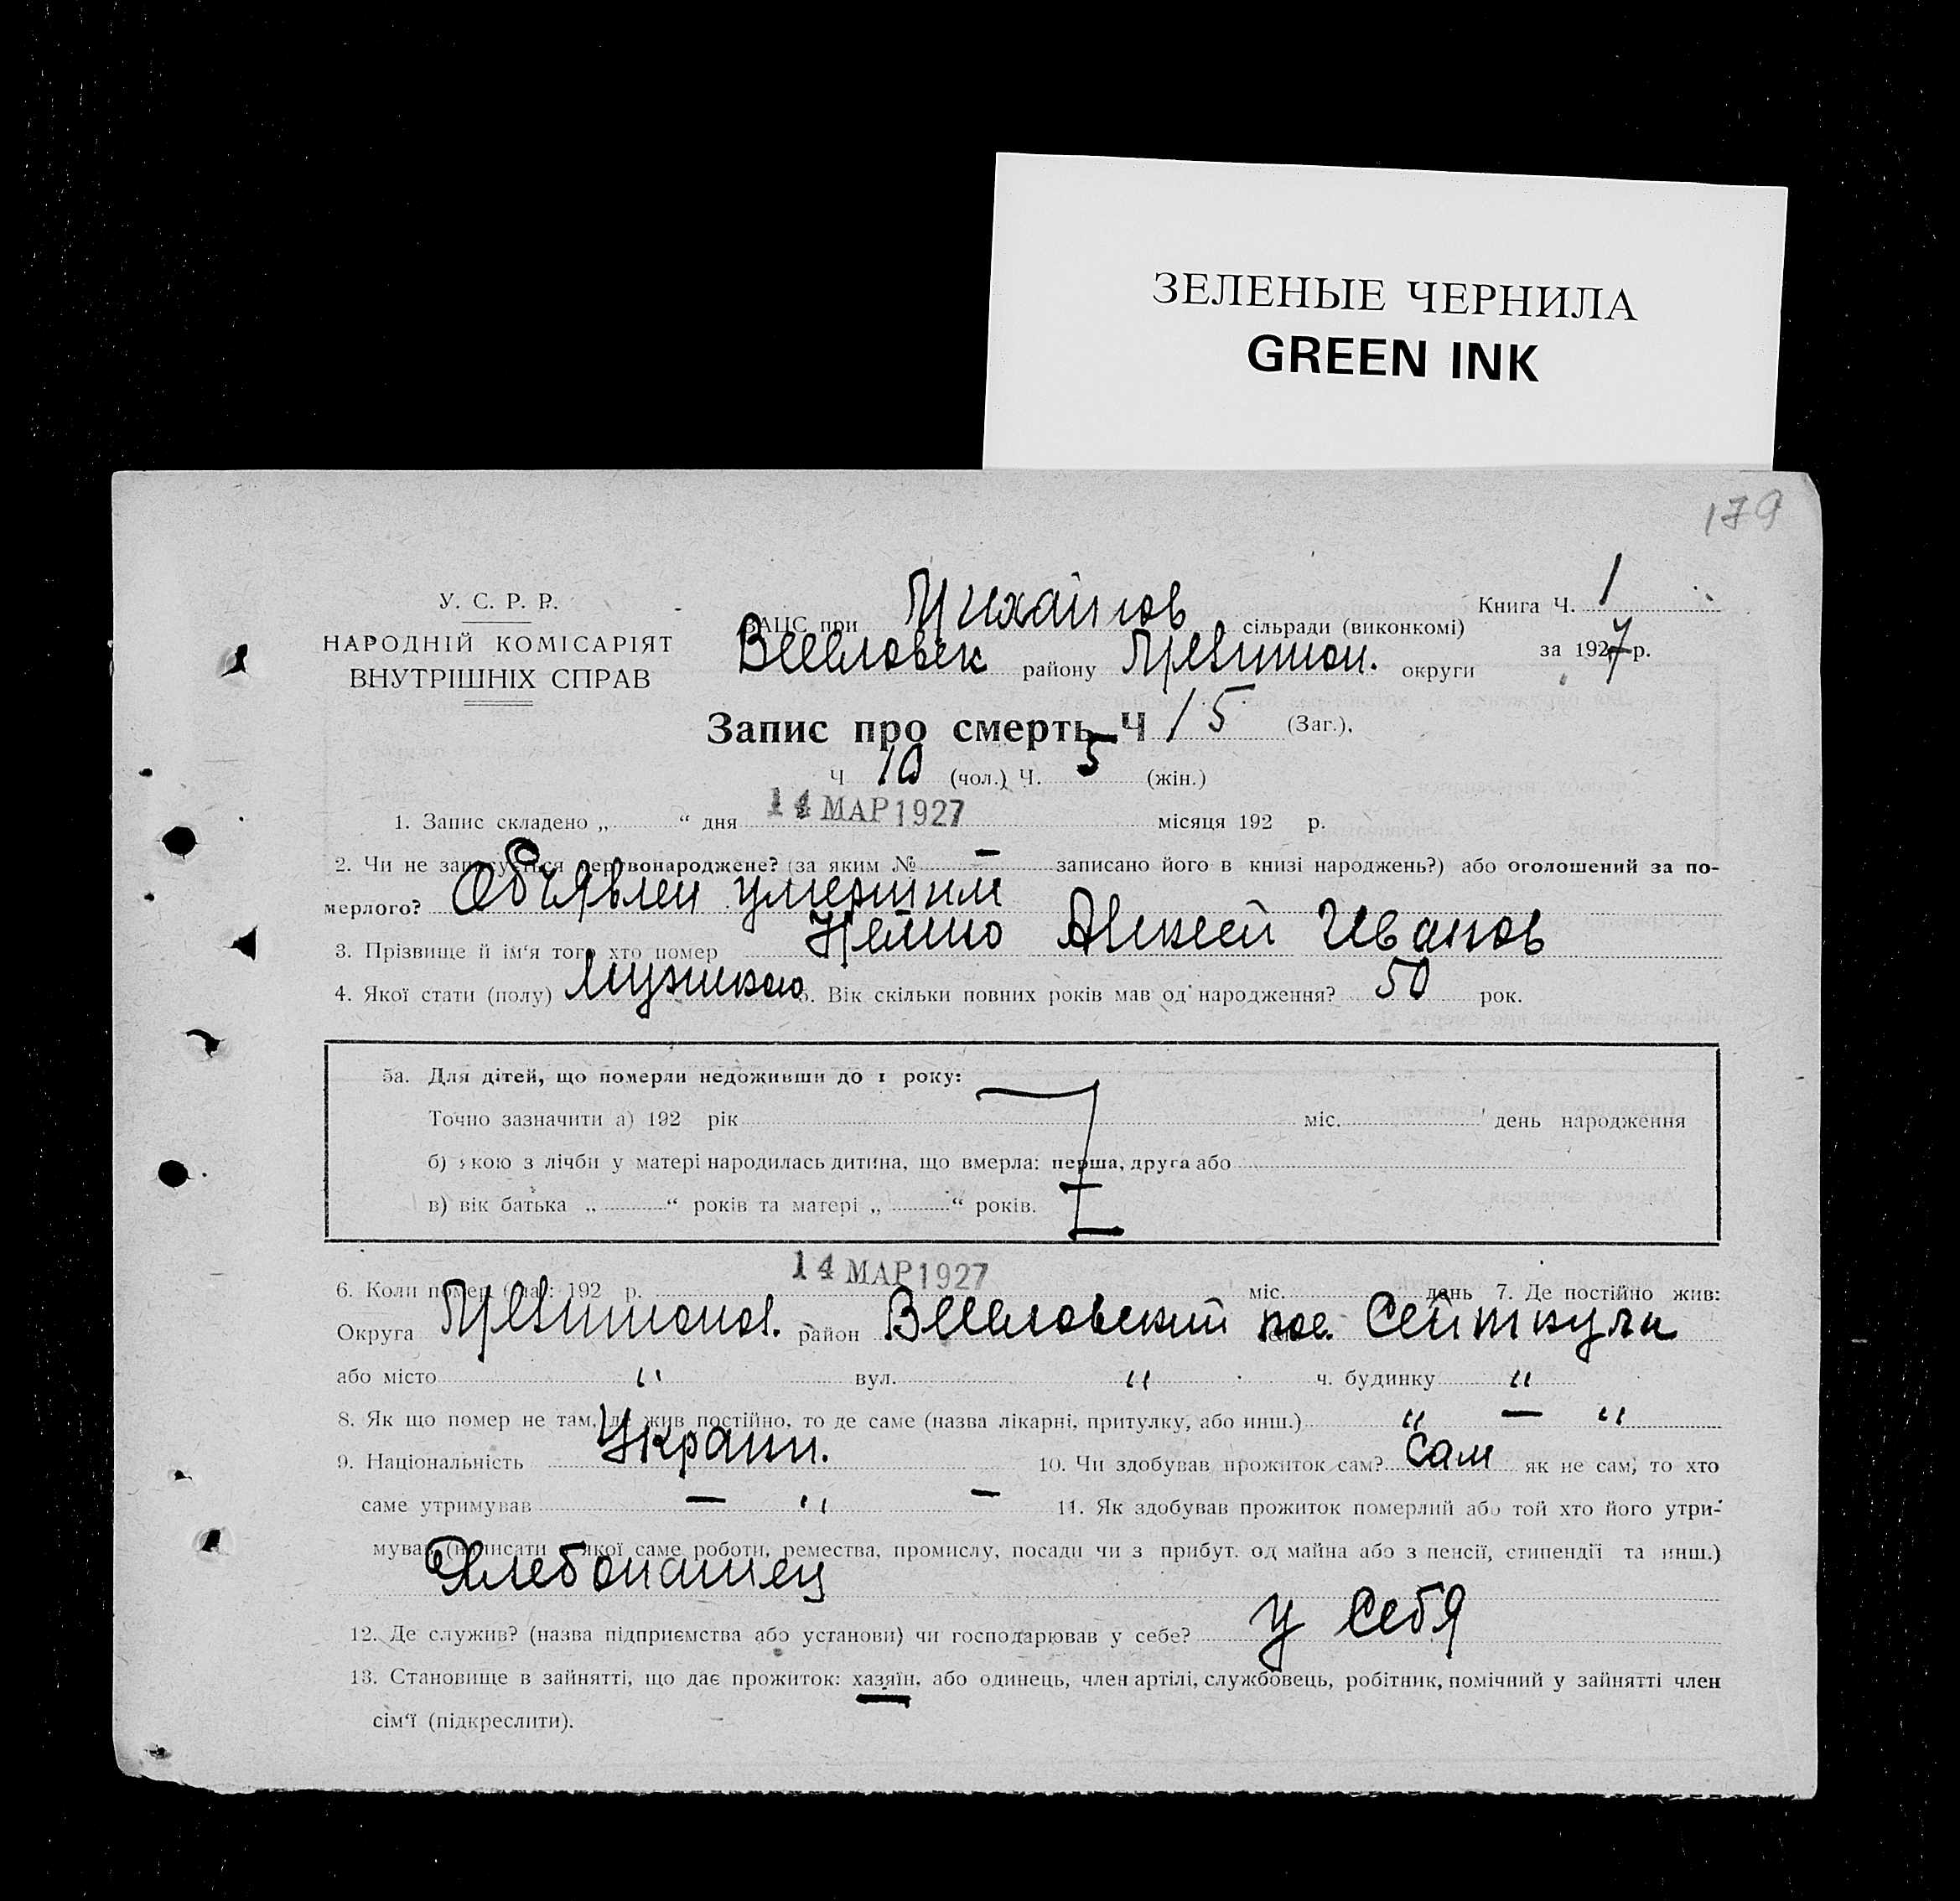 ЗЕЛЕНЫЕ ЧЕРНИЛА
GREEN INK
179
У. С. Р. Р.
НАРОДНІЙ КОМІСАРІЯТ
ВНУТРІШНІХ СПРАВ
ЗАЦС при Михайлов сільради (виконкомі)
Веселовск району округи
Книга Ч. 1
за 1927 р.
Запис про смерть Ч 15 (Заг.),
Ч 10 (чол.) Ч. 5 (жін.)
1. Запис складено „ “ дня 14 МАР 1927 місяця 192 р.
2. Чи не записується мертвонароджене? (за яким № — записано його в книзі народжень?) або оголошений за по-
мерлого? Объявлен умершим
3. Прізвище й ім'я того хто помер Алексей Иванов
4. Якої стати (полу) мужского 5. Вік скільки повних років мав од народження? 50 рок.
5а. Для дітей, що померли недоживши до 1 року:
Точно зазначити а) 192 рік міс. день народження
б) якою з лічби у матері народилась дитина, що вмерла: перша, друга або
в) вік батька „ “ років та матері „ “ років.
6. Коли помер (ла): 192 р. 14 МАР 1927 міс. день 7. Де постійно жив:
Округа район Веселовский пос. Сейткули
або місто " вул. " ч. будинку "
8. Як що помер не там, де жив постійно, то де саме (назва лікарні, притулку, або инш.) " — "
9. Національність Украин. 10. Чи здобував прожиток сам? Сам як не сам, то хто
саме утримував — " — 11. Як здобував прожиток померлий або той хто його утри-
мував (написати з якої саме роботи, ремества, промислу, посади чи з прибут. од майна або з пенсії, стипендії та инш.)
Хлебопашец
12. Де служив? (назва підприємства або установи) чи господарював у себе? У себя
13. Становище в зайнятті, що дає прожиток: хазяїн, або одинець, член артілі, службовець, робітник, помічний у зайнятті член
сім'ї (підкреслити).